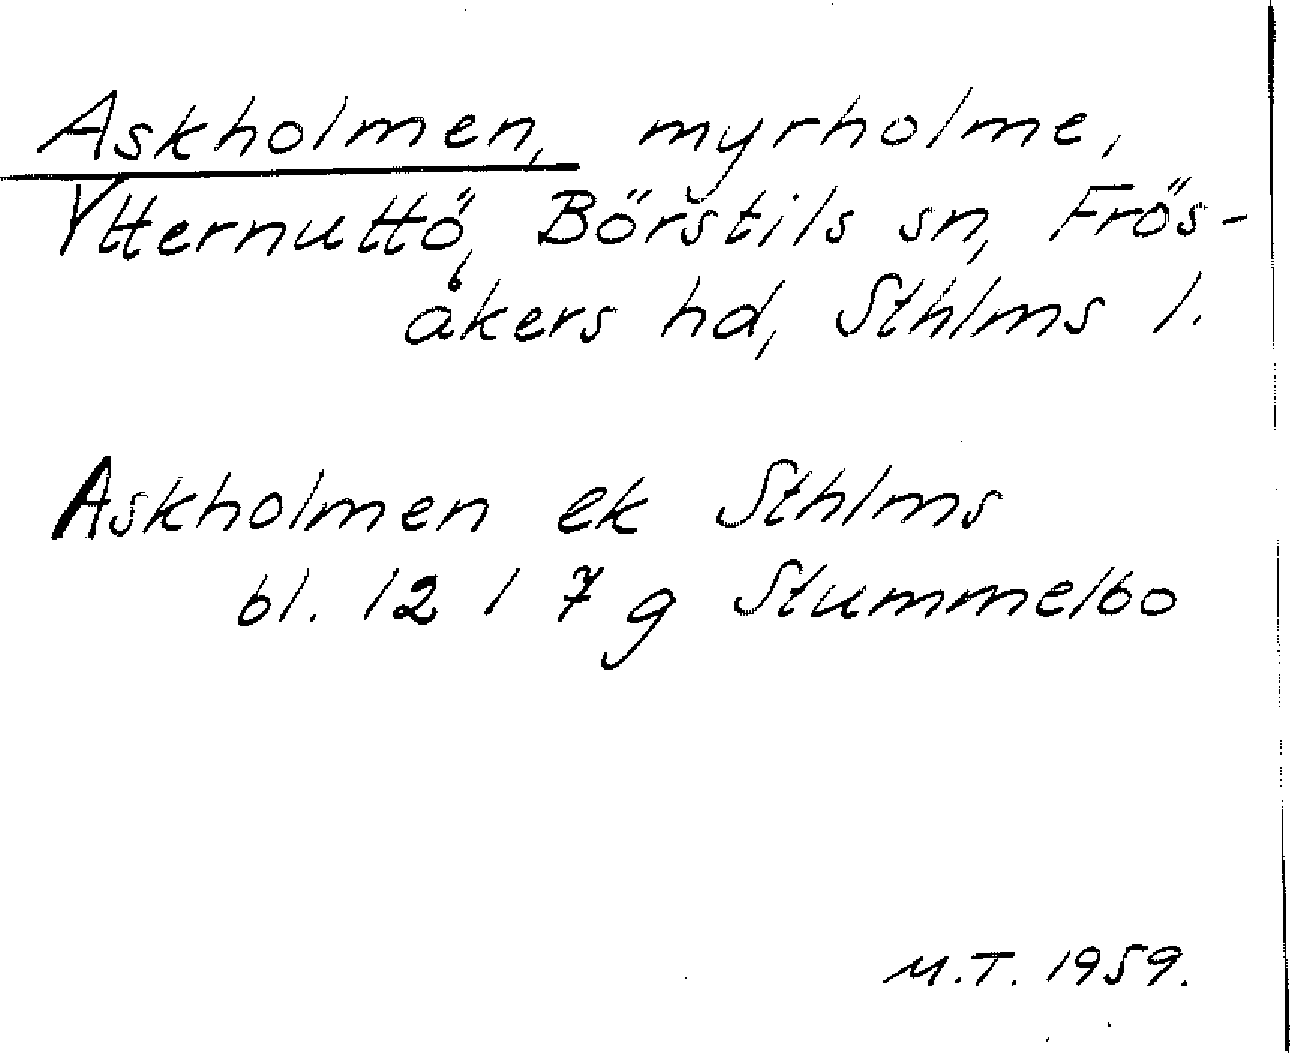 Askholmen, myrholme,
Ytternuttö, Börstils sn, Frös-
åkers hd, Sthlms l.
Askholmen ek Sthlms
bl. 12 I 7 g Stummelbo
M.T. 1959.